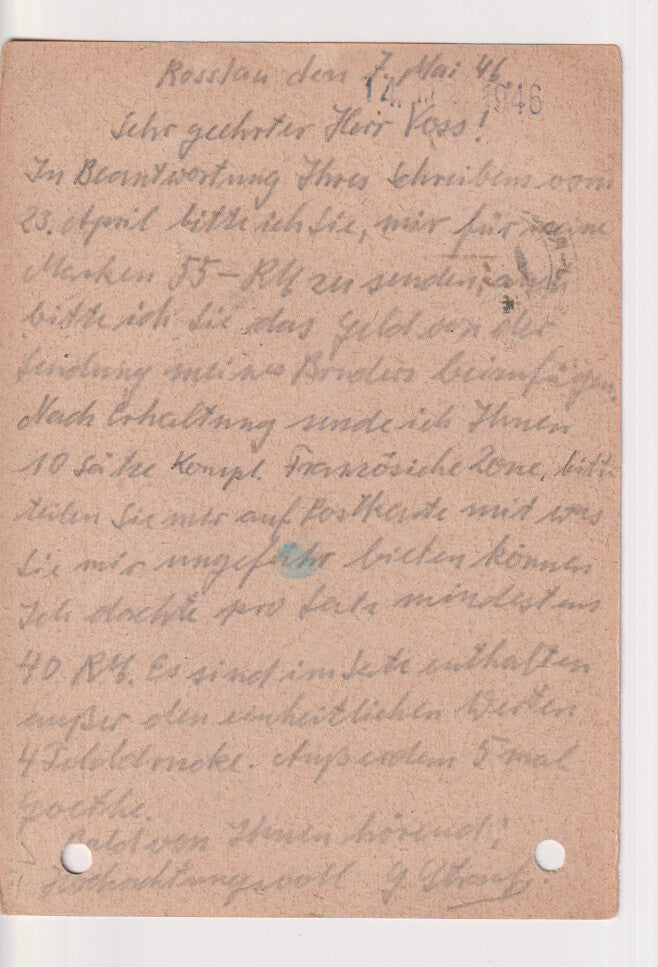 Rosslau den 7. Mai 46.
1946
Sehr geehrter Herr Voss!
In Beantwortung Ihres Schreibens vom
23. April bitte ich Sie, mir für meine
Marken 55-RM zu senden,
bitte ich Sie das Geld von der
Sendung meines Bruders beizufügen.
Nach Erhaltung sende ich Ihnen
10 Sätze Kompl. Französiche Zone, bitte
teilen Sie mir auf Postkarte mit was
Sie mir ungefähr bieten können
Ich dachte pro Satz mindestens
40 RM. Es sind im Satz enthalten
außer den einheitlichen Werten
4 Fehldrucke. Außerdem 5 mal
Goethe.
Bald von Ihnen hörend,
Hochachtungsvoll G